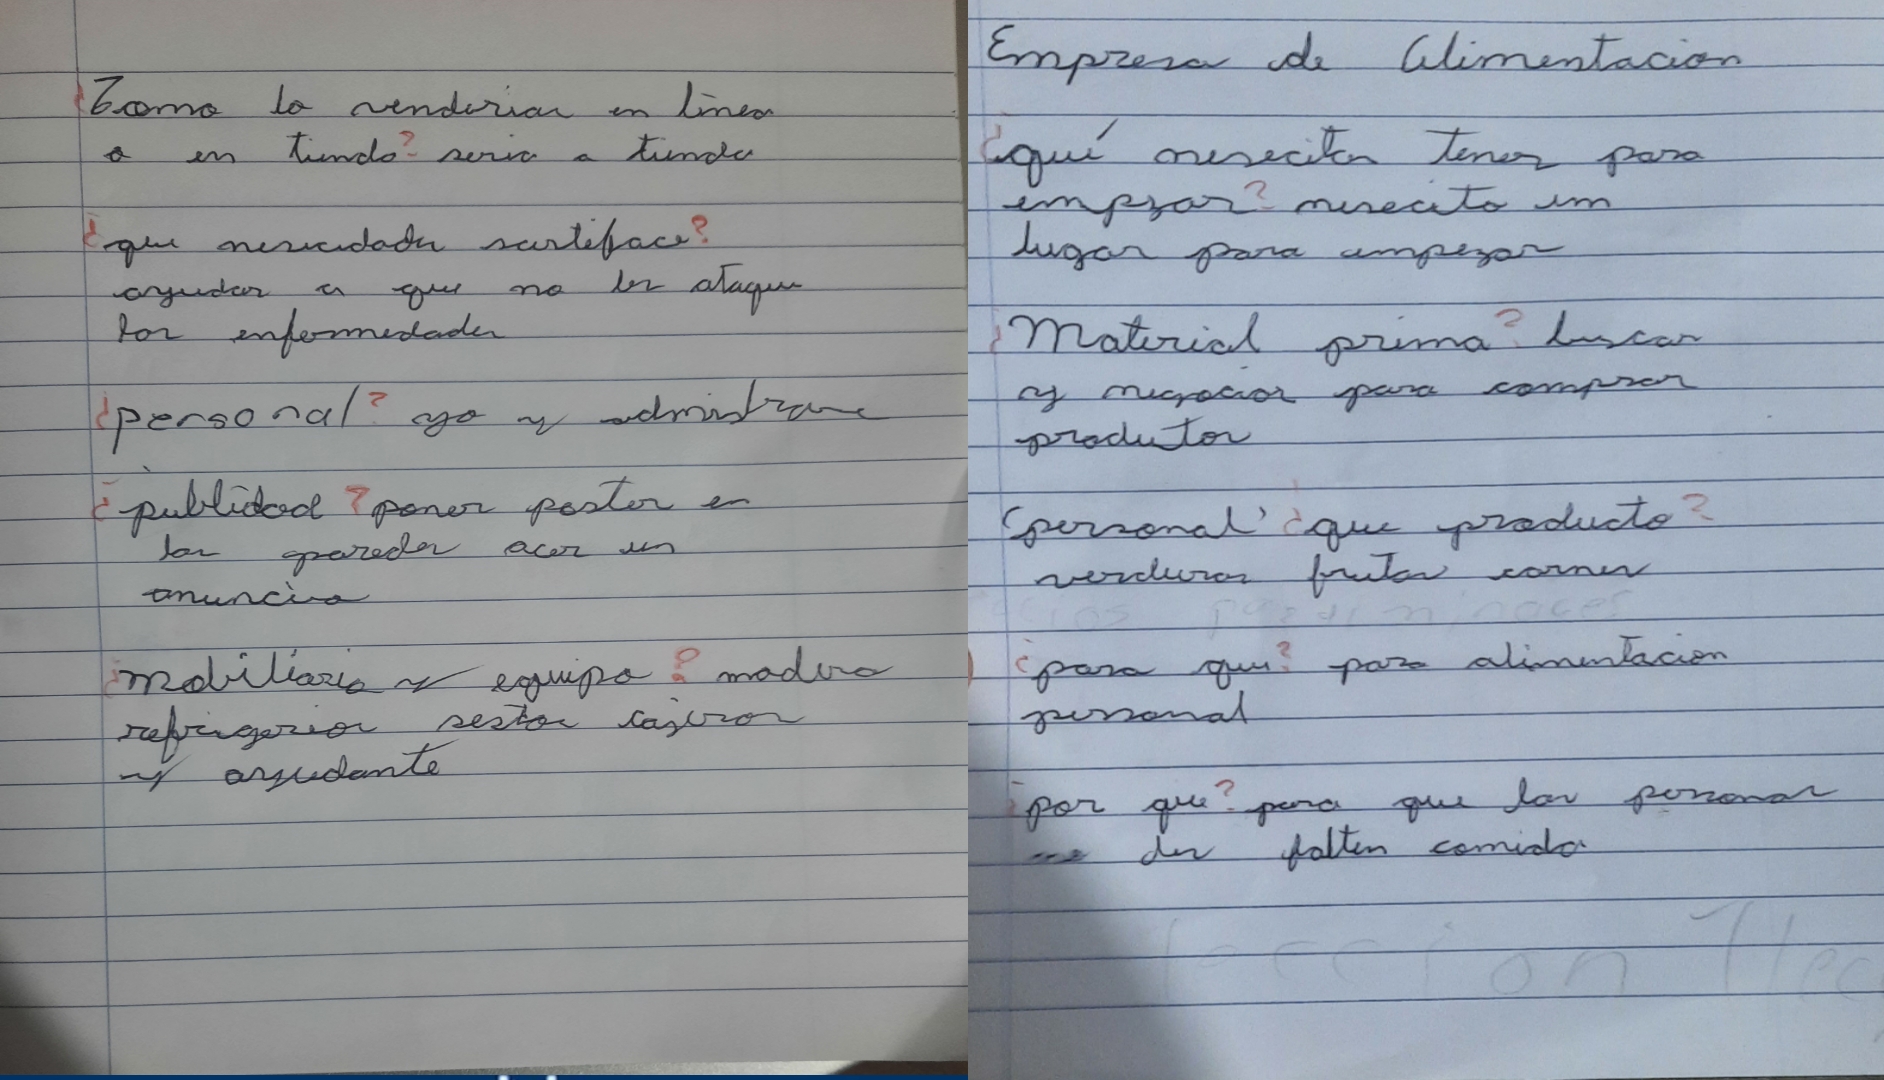 ¿Como lo venderias en linea
o en tienda? seria a tienda
¿que nesecidades sastiface?
ayudar a que no les ataque
las enfermedades
¿personal? yo y admistrare
¿publidad? poner poster en
las paredes acer un
anuncio
¿mobiliario y equipo? madera
refrigerios sestos cajeros
y ayudante
Empresa de Alimentacion
¿qué nesecitas tener para
empzar? nesecito un
lugar para empezar
¿Material prima? buscar
y negocios para comprar
produtos
(personal) ¿que producto?
verduras frutas carnes
¿para que? para alimentacion
personal
¿por que? para que las personas
les falten comida